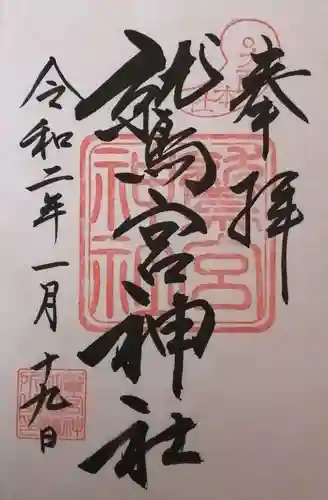 奉拝
鷲宮神社
令和二年一月十九日
鷲宮神社